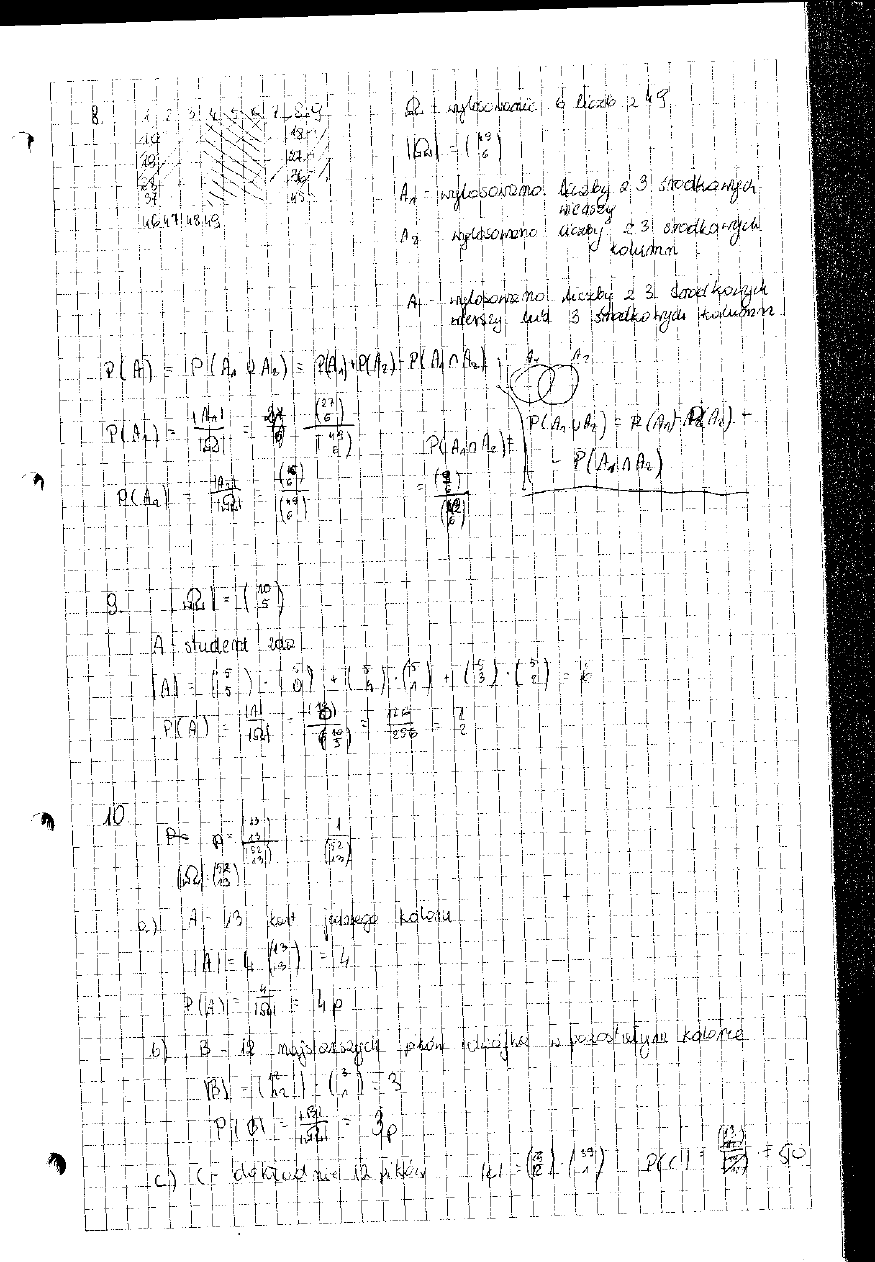 8. 1 2 3 4 5 6 7 8 9
10 18
19 27
28 36
37 45
46 47 48 49
Ω - wylosowanie 6 liczb z 49
|Ω| = (49 6)
A₁ - wylosowano liczby z 3 środkowych
wierszy
A₂ - wylosowano liczby z 3 środkowych
kolumn
A - wylosowano liczby z 3 środkowych
wierszy lub 3 środkowych kolumn
P(A) = P(A₁ ∪ A₂) = P(A₁) + P(A₂) - P(A₁ ∩ A₂)
A₁ A₂
P(A₁ ∪ A₂) = P(A₁) + P(A₂) -
- P(A₁ ∩ A₂)
P(A₁) = |A₁| / |Ω| = (27 6) / (49 6)
P(A₁ ∩ A₂) =
= (9 6) / (49 6)
P(A₂) = |A₂| / |Ω| = / (49 6)
9. |Ω| = (10 5)
A - student zda
|A| = (5 5) · (5 0) + (5 4) · (5 1) + (5 3) · (5 2) =
P(A) = |A| / |Ω| =
10
P = (13 13) / (52 13) = 1 / (52 13)
|Ω| = (52 13)
a) A - 13 kart jednego koloru
|A| = 4 (13 13) = 4
P(A) = 4 / |Ω| = 4p
b) B - 12 najstarszych pików i dwójka w pozostałym kolorze
|B| = (12 12) · (3 1) = 3
= |B| / |Ω| = 3p
c) C - dokładnie 12 pików |C| = (13 12) · (39 1) P(C) = = 50